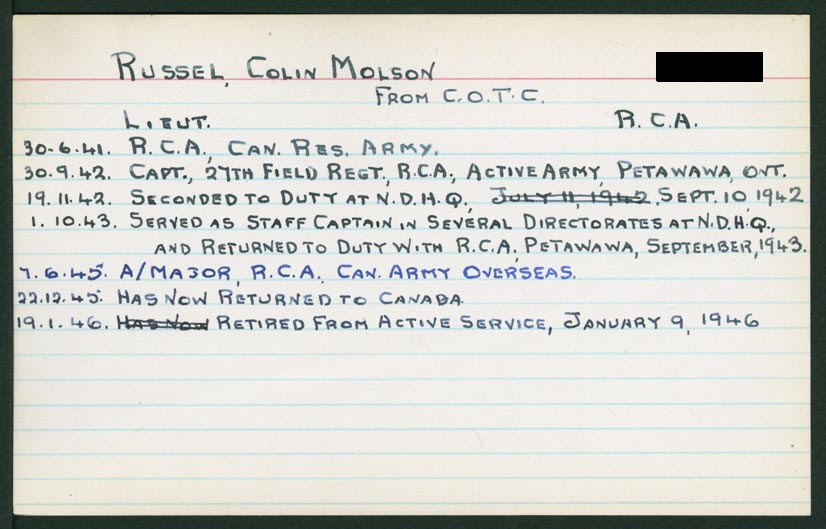 RUSSEL, COLIN MOLSON
FROM C.O.T.C.
LIEUT. R.C.A.
30-6.41. R.C.A., CAN. RES. ARMY.
30.9.42. CAPT., 27TH FIELD REGT., R.C.A., ACTIVE ARMY, PETAWAWA, ONT.
19.11.42. SECONDED TO DUTY AT N.D.H.Q., JULY 11, 1942, SEPT. 10 1942
1.10.43. SERVED AS STAFF CAPTAIN IN SEVERAL DIRECTORATES AT N.D.H.Q.,
AND RETURNED TO DUTY WITH R.C.A., PETAWAWA, SEPTEMBER, 1943.
7.6.45. A/MAJOR, R.C.A. CAN. ARMY OVERSEAS.
22.12.45. HAS NOW RETURNED TO CANADA.
19.1.46. HAS NOW RETIRED FROM ACTIVE SERVICE, JANUARY 9, 1946